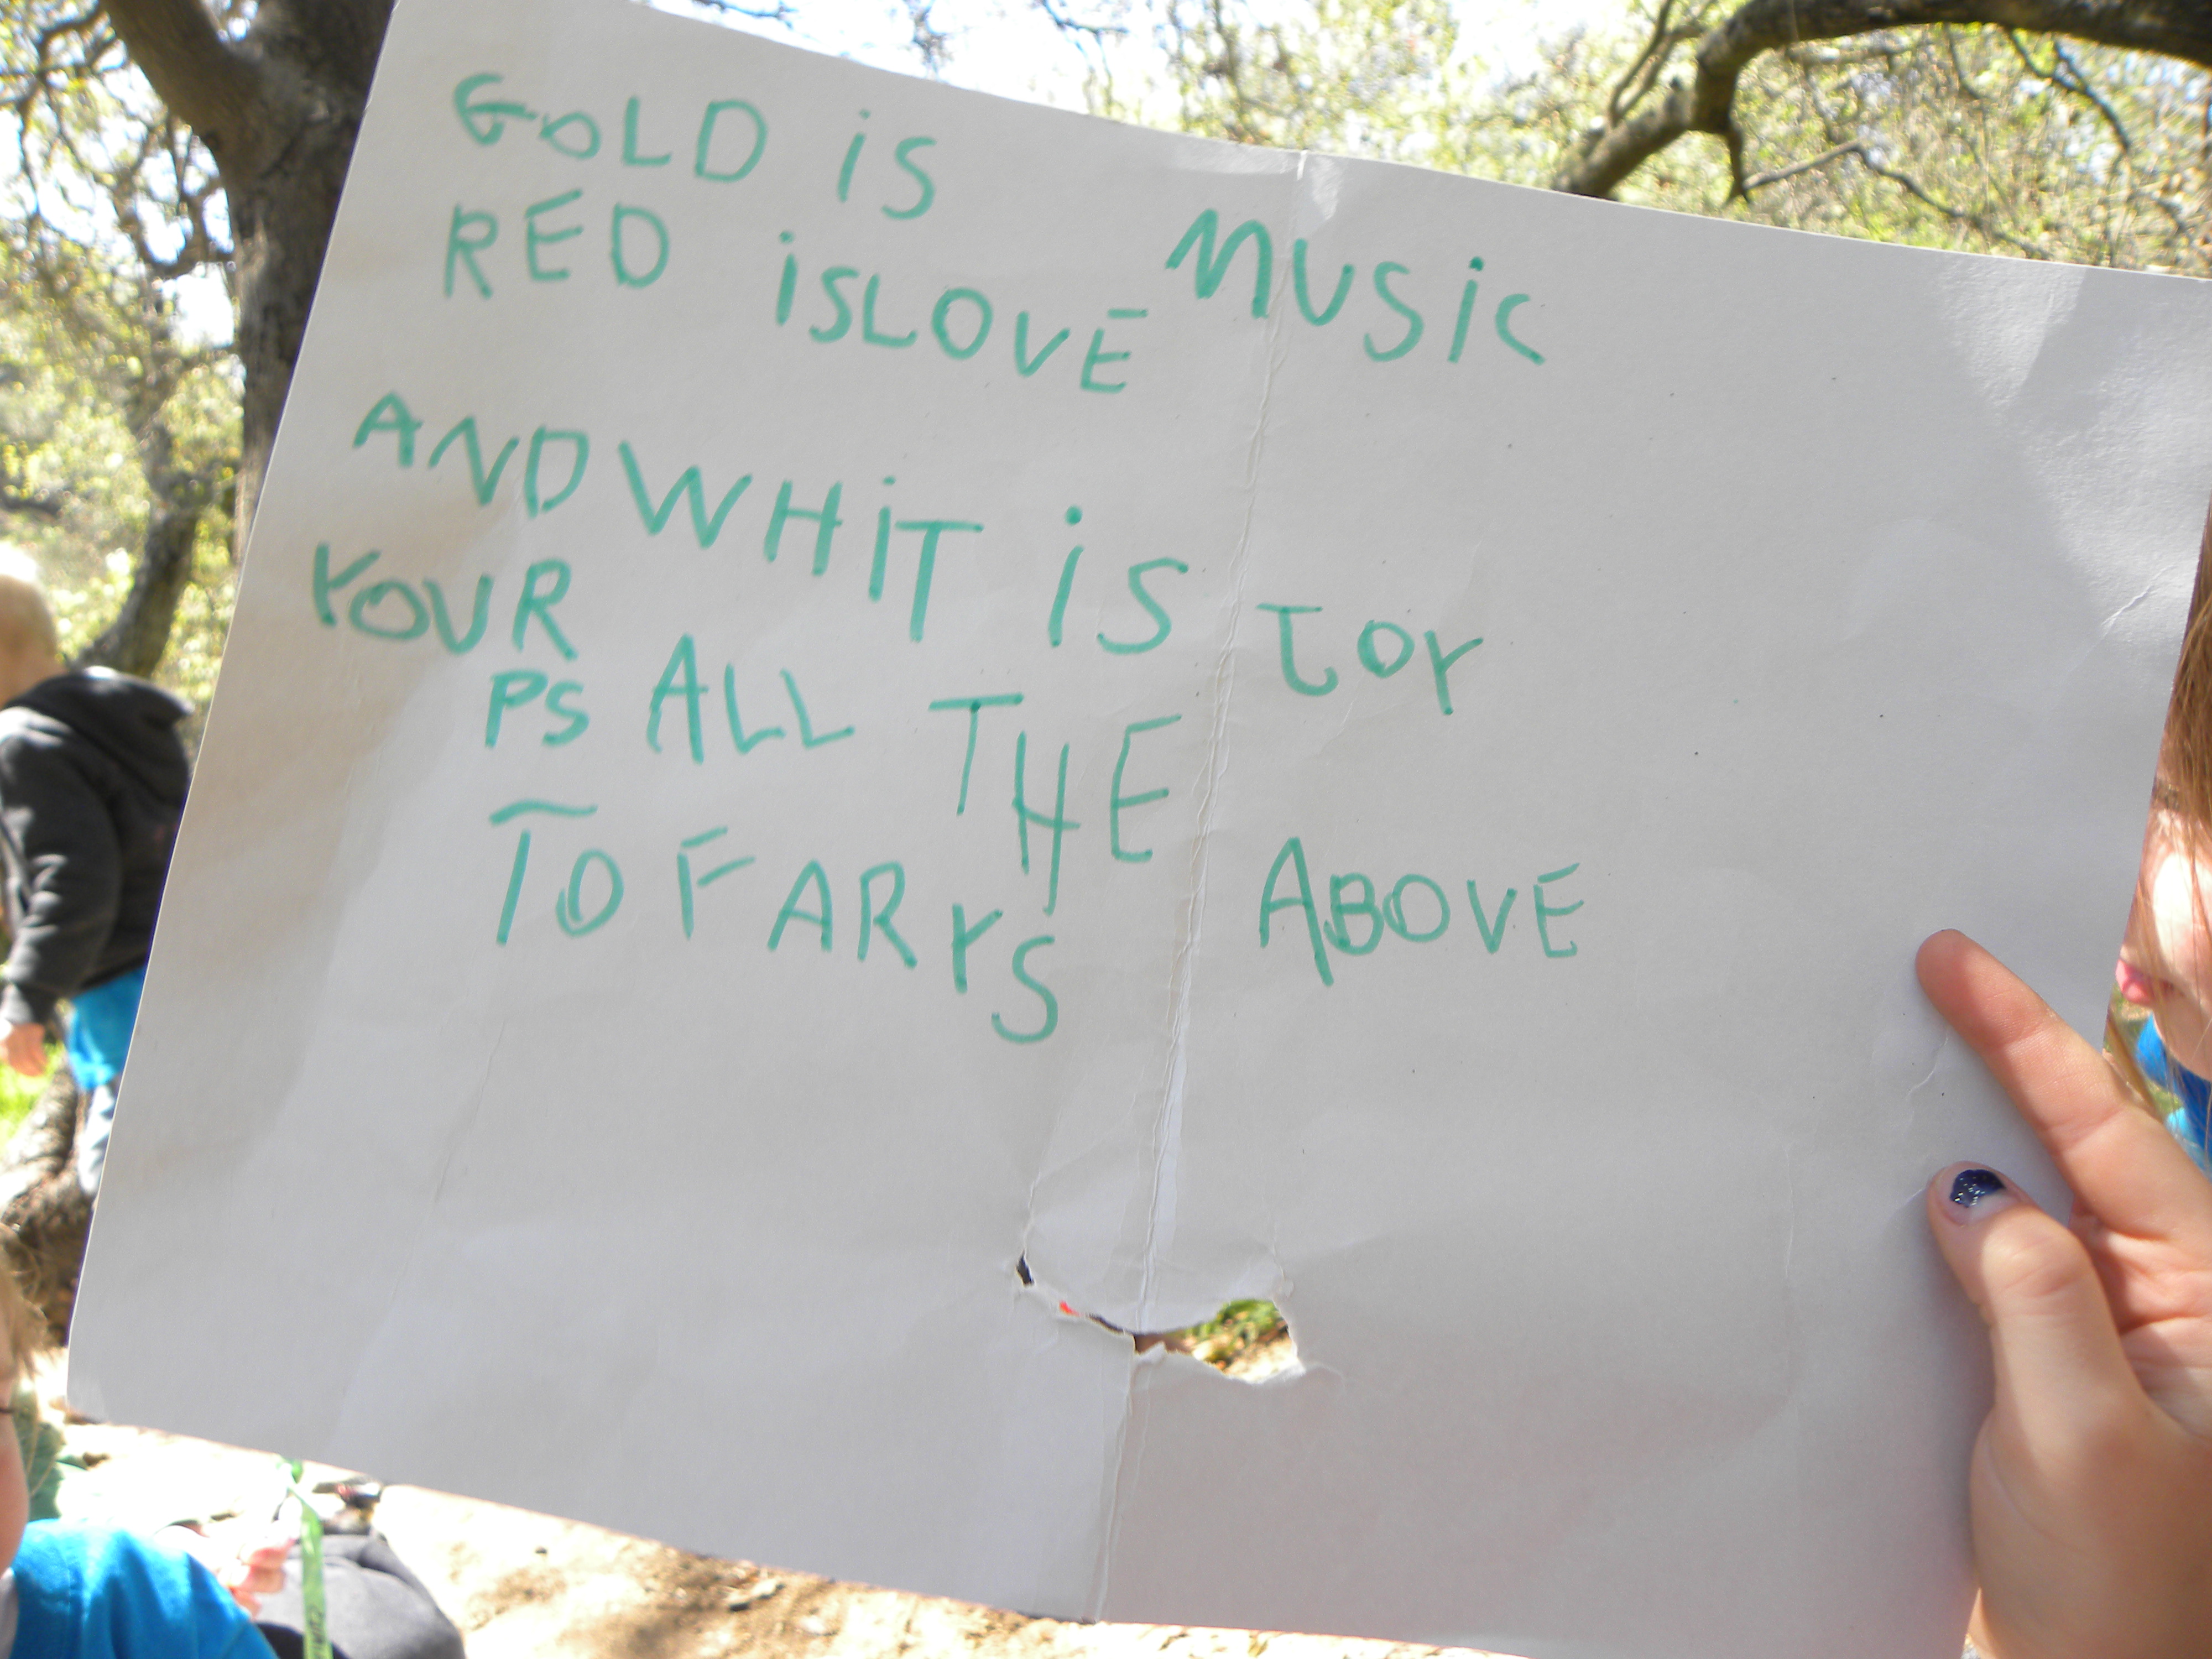 GOLD iS MUSiC
RED iSLOVE
AND WHiT iS JOY
YOUR ALL THE ABOVE
PS
TO FARYS